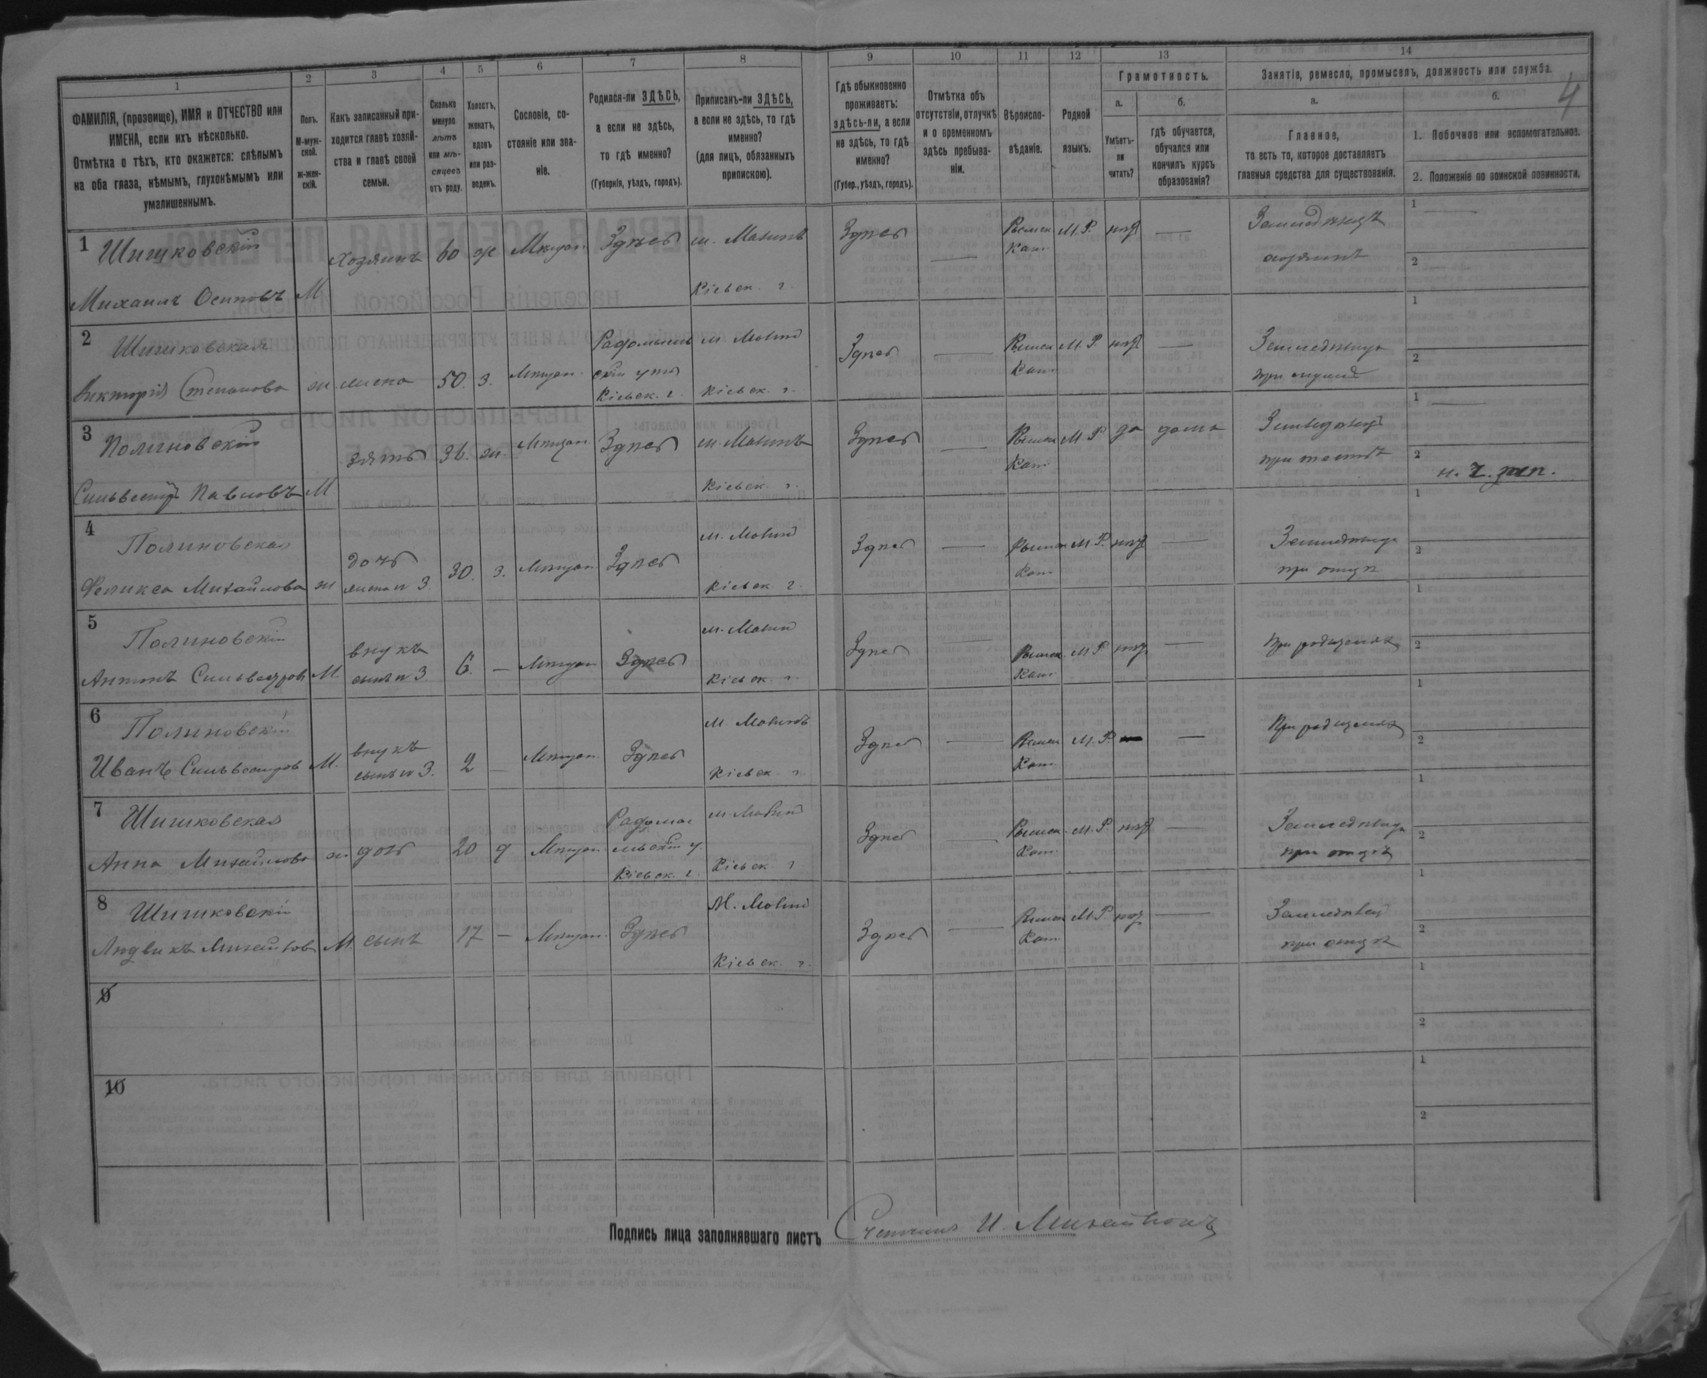 4
1 2 3 4 5 6 7 8 9 10 11 12 13 14
ФАМИЛІЯ, (прозвище), ИМЯ и ОТЧЕСТВО или ИМЕНА, если ихъ нѣсколько.
Отмѣтка о тѣхъ, кто окажется: слѣпымъ на оба глаза, нѣмымъ, глухонѣмымъ или умалишеннымъ.
Полъ.
М-муж-
ской.
ж-жен-
скій.
Какъ записанный при-
ходится главѣ хозяй-
ства и главѣ своей
семьи.
Сколько
минуло
лѣтъ
или мѣ-
сяцевъ
отъ роду.
Холостъ,
женатъ,
вдовъ
или раз-
веденъ.
Сословіе, со-
стояніе или зва-
ніе.
Родился-ли ЗДѢСЬ,
а если не здѣсь,
то гдѣ именно?
(Губернія, уѣздъ, городъ).
Приписанъ-ли ЗДѢСЬ,
а если не здѣсь, то гдѣ
именно?
(для лицъ, обязанныхъ
припискою).
Гдѣ обыкновенно
проживаетъ:
здѣсь-ли, а если
не здѣсь, то гдѣ
именно?
(Губер., уѣздъ, городъ).
Отмѣтка объ
отсутствіи, отлучкѣ
и о временномъ
здѣсь пребыва-
ніи.
Вѣроиспо-
вѣданіе.
Родной
языкъ.
Грамотность.
а.
Умѣетъ-
ли
читать?
б.
гдѣ обучается,
обучался или
кончилъ курсъ
образованія?
Занятіе, ремесло, промыселъ, должность или служба.
а.
Главное,
то есть то, которое доставляетъ
главныя средства для существованія.
б.
1. Побочное или вспомогательное.
2. Положеніе по воинской повинности.
1 Шишковскій
Михаилъ Осиповъ М Хозяинъ 60 ж Мѣщан. Здѣсь м. Макинъ Кіевск. г. Здѣсь — Римск Кат М.Р. нѣт —
2 Шишковская
Викторія Степанова ж жена 50. з. Мѣщан. Кіевск. г. м. Кіевск. г. Здѣсь — Римск Кат М.Р. нѣт — Земледѣлица при мужѣ
3 Полиновскій
Сильвестръ Павловъ М зять 36. ж Мѣщан Здѣсь м. Кіевск. г. Здѣсь — Римск Кат М.Р. да дома при тестѣ
4 Полиновская
Феликса Михайлова ж дочь жена N 3 30. з. Мѣщан Здѣсь м. Кіевск г. Здѣсь — Римск Кат М.Р. нѣт — Земледѣлица при отцѣ
5 Полиновскій
Антонъ Сильвестров М. внукъ сынъ N 3 6. — Мѣщан Здѣсь м. Кіевск. г. Здѣсь — Римск Кат М.Р. нѣт — При родителяхъ
6 Полиновскій
Иванъ Сильвестров М. внукъ сынъ N 3. 2 — Мѣщан. Здѣсь м Кіевск. г. Здѣсь — Римск Кат М.Р. — — При родителяхъ
7 Шишковская
Анна Михайлова ж дочь 20 д Мѣщан Кіевск. г. м. Кіевск г Здѣсь — Римск Кат М.Р. нѣт — Земледѣлица при отцѣ
8 Шишковскій
Людвикъ Михайлов М сынъ 17 — Мѣщан. Здѣсь М. Кіевск. г. Здѣсь — Римск Кат М.Р. нѣт — при отцѣ
9
10
Подпись лица заполнявшаго листъ